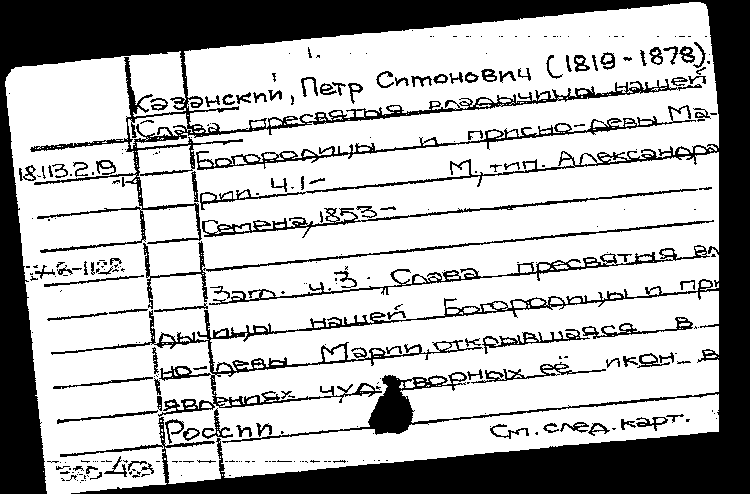 Казанский, Петр Симонович (1819-1878).
Слава пресвятыя владычицы нашей
Богородицы и присно-девы Ма-
18.113.2.19
рии. Ч.1- М, тип. Александра
Семена, 1853-
Загл. ч.3: „Слава пресвятыя вл
дычицы нашей Богородицы и при
но-девы Марии, открывшаяся в
явлениях чуд творных её икон в
России.
См. след. карт.